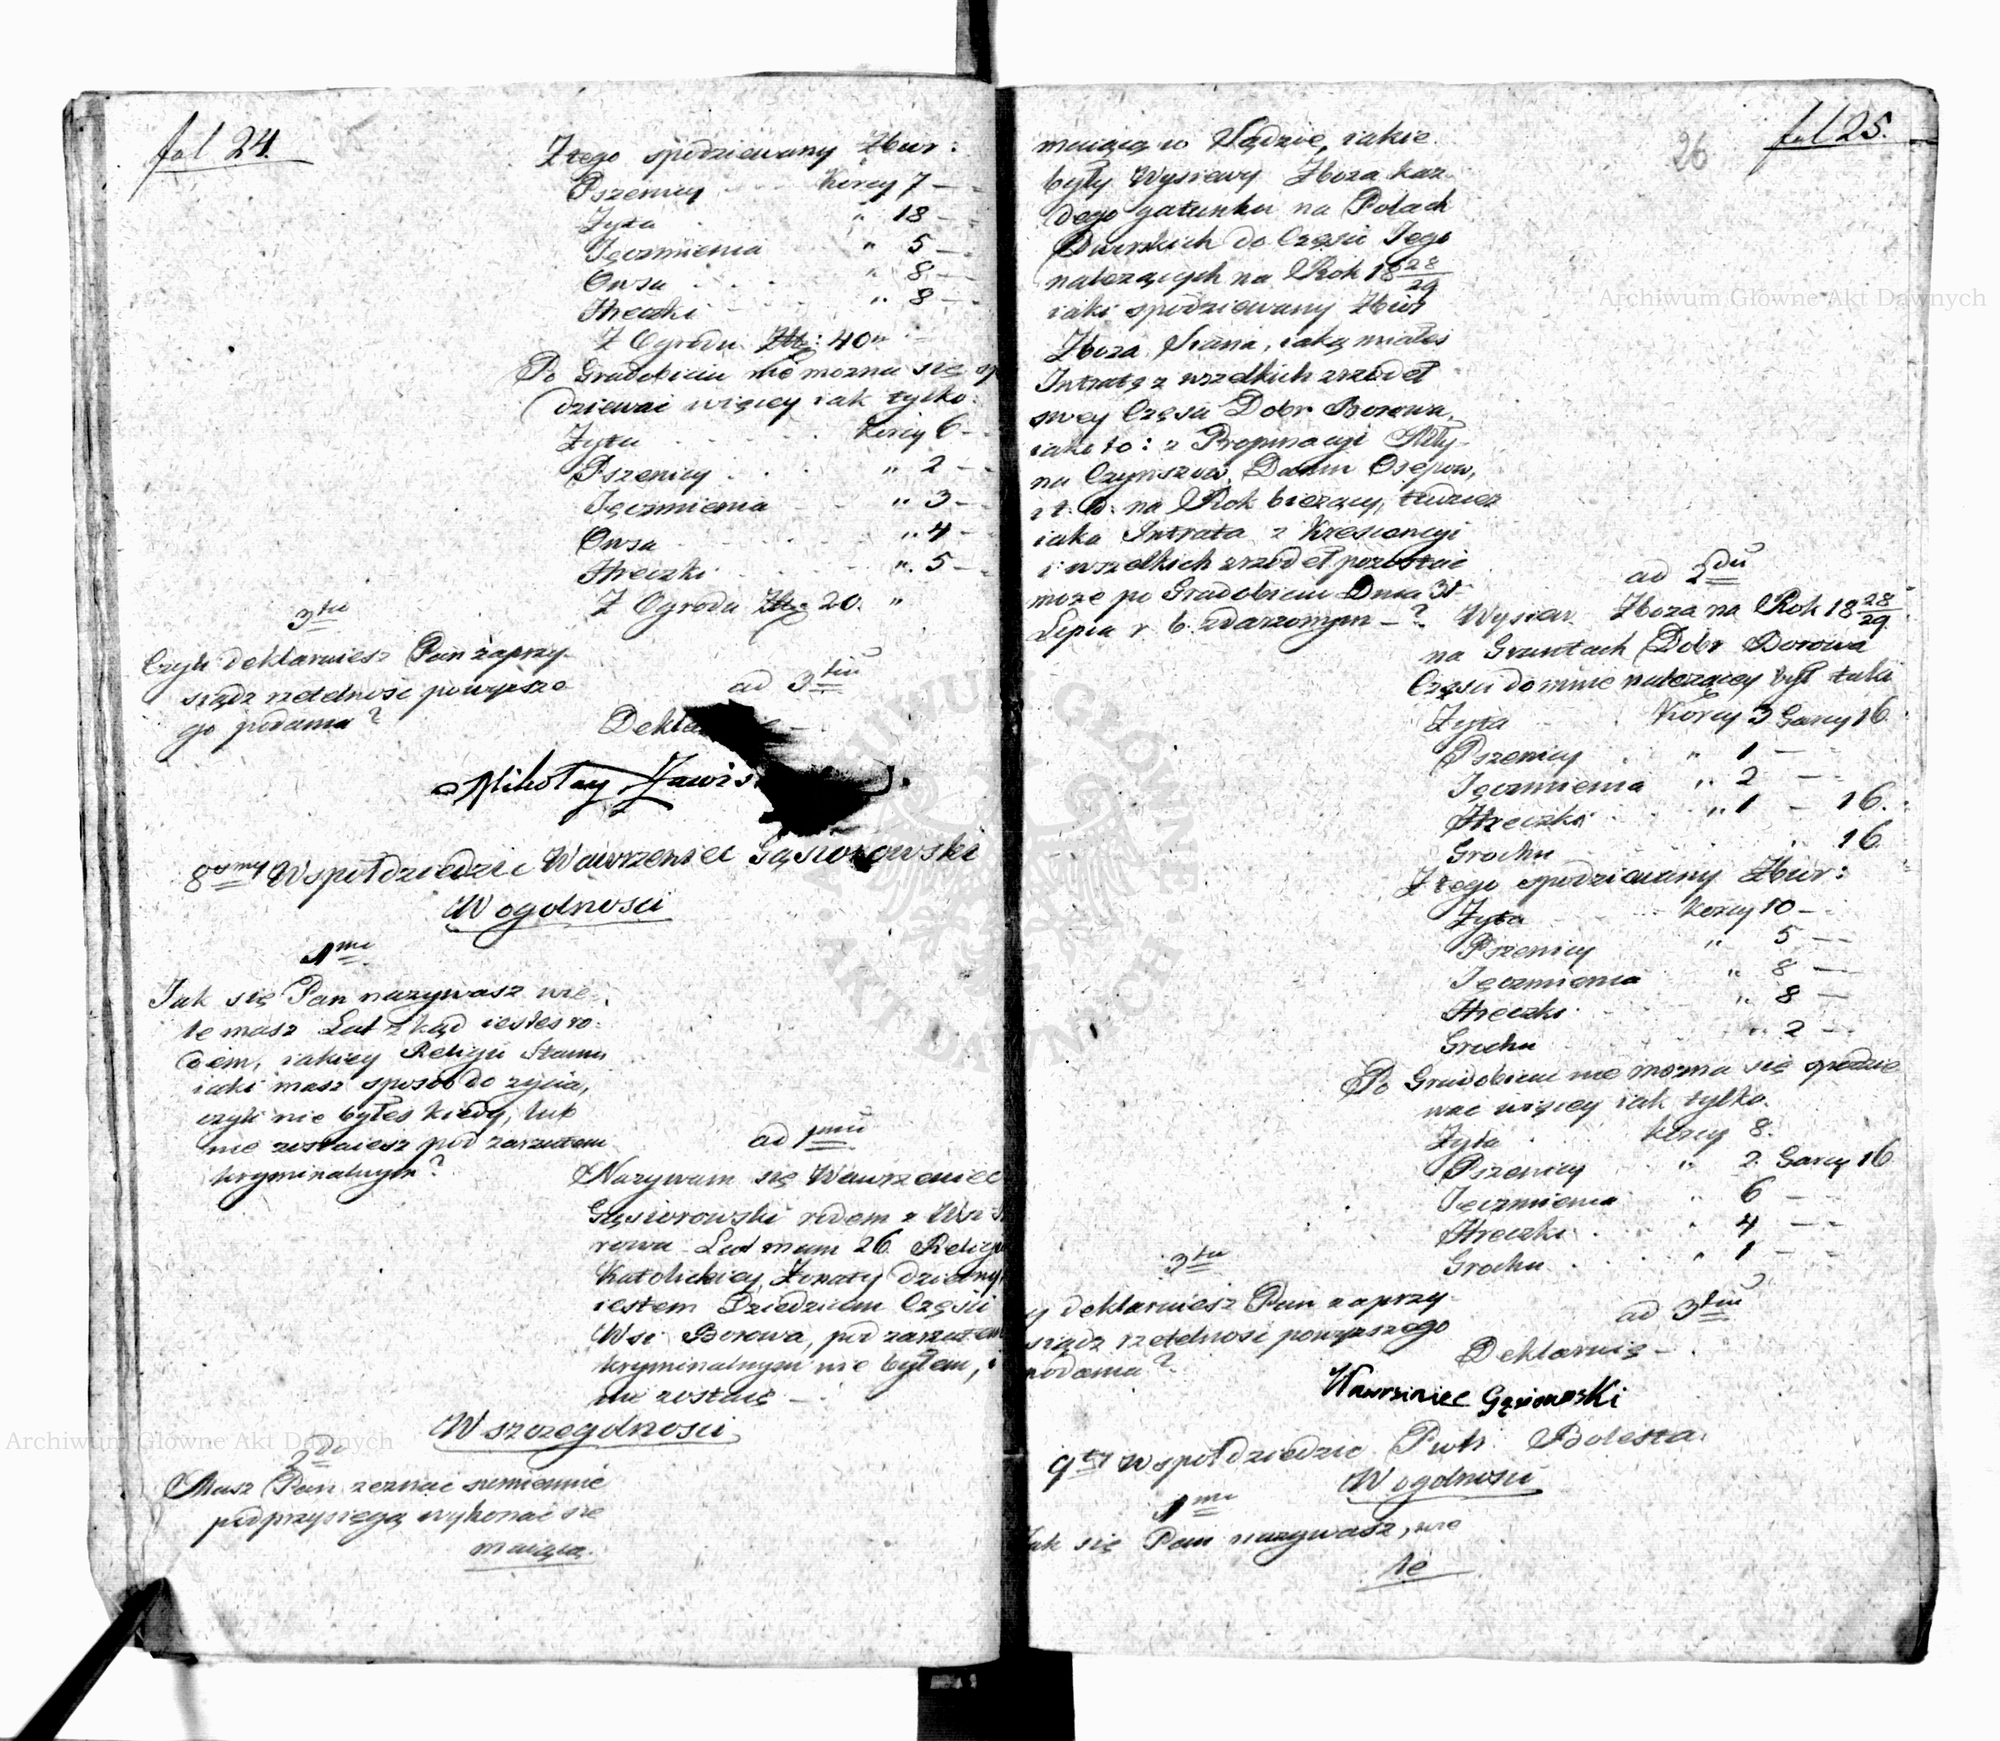 fol 24.
Z tego spodziewany Zbiór:
Pszenicy Korcy 7 –
Żyta " 18 –
Jęczmienia " 5 –
Owsa " 8 –
Hreczki " 8 –
Z Ogrodu Złtp: 40 "
Po Gradobiciu nie można się sp
dziewać więcey iak tylko:
Żyta Korcy 6 –
Pszenicy " 2 –
Jęczmienia " 3 –
Owsa " 4 –
Hreczki " 5 –
Z Ogrodu Złtp: 20. "
3tio
Czyli deklaruiesz Pan zaprzy-
siądz rzetelność powyższe-
go podania?
ad 3tiu
Dekla
Mikołay Zawis
8smy Wspołdziedzic Wawrzeniec Gąsiorowski
W ogolności
1mo
Jak się Pan nazywasz wie-
le masz Lat zkąd iesteś ro-
dem, iakiey Religii Stanu
iaki masz sposob do życia,
czyli nie byłeś kiedy, lub
nie zostaiesz pod zarzutem
kryminalnym?
ad 1mu
Nazywam się Wawrzeniec
Gąsiorowski rodem z Wsi
rowa Lat mam 26. Religii
Katolickiey, Żonaty dzietny
iestem Dziedzicem Części
Wsi Borowa, pod zarzutem
kryminalnym nie byłem, i
nie zostaię –
W szczegolności
2do
Masz Pan zeznać sumiennie
pod przysięgą wykonać się
maiącą.
fol 25.
26
maiącą w Sądzie, iakie
były Wysiewy Zboża każ-
dego gatunku na Polach
Dworskich do Części Jego
należących na Rok 1828/29
iaki spodziewany Zbiór
Zboża Siana, iaką miałeś
Intratę z wszelkich zrzodeł
swey Części Dobr Borowa,
iako to: z Propinacyi Mły-
na Czynszów, Danin Osepów,
i t. d. na Rok bieżący, tudzież
iaka Intrata z Krescencyi
i wszelkich zrzodeł pozostać
może po Gradobiciu Dnia 31
Lipca r. b. zdarzonym – ?
ad 2du
Wysiew Zboża na Rok 1828/29
na Gruntach Dobr Borowa
Części do mnie należącey był taki
Żyta Korcy 3 Garcy 16
Pszenicy " 1 –
Jęczmienia " 2 –
Hreczki " 1 – 16.
Grochu 16.
Z tego spodziewany Zbiór:
Żyta Korcy 10 –
Pszenicy " 5 –
Jęczmienia " 8 –
Hreczki " 8 –
Grochu " 2 –
Po Gradobiciu nie można się spodzie
wać więcey iak tylko.
Żyta Korcy 8.
Pszenicy " 2. Garcy 16
Jęczmienia " 6 –
Hreczki " 4 –
Grochu " 1 –
3tio
y deklaruiesz Pan zaprzy-
siądz rzetelność powyższego
podania?
ad 3tiu
Deklaruię –
Wawrziniec Gąsiorowski
9ty Wspołdziedzic Piotr Bolesta.
W ogolności
1mo
Jak się Pan nazywasz, wie
le
Archiwum Główne Akt Dawnych
Archiwum Główne Akt Dawnych
ARCHIWUM GŁÓWNE AKT DAWNYCH